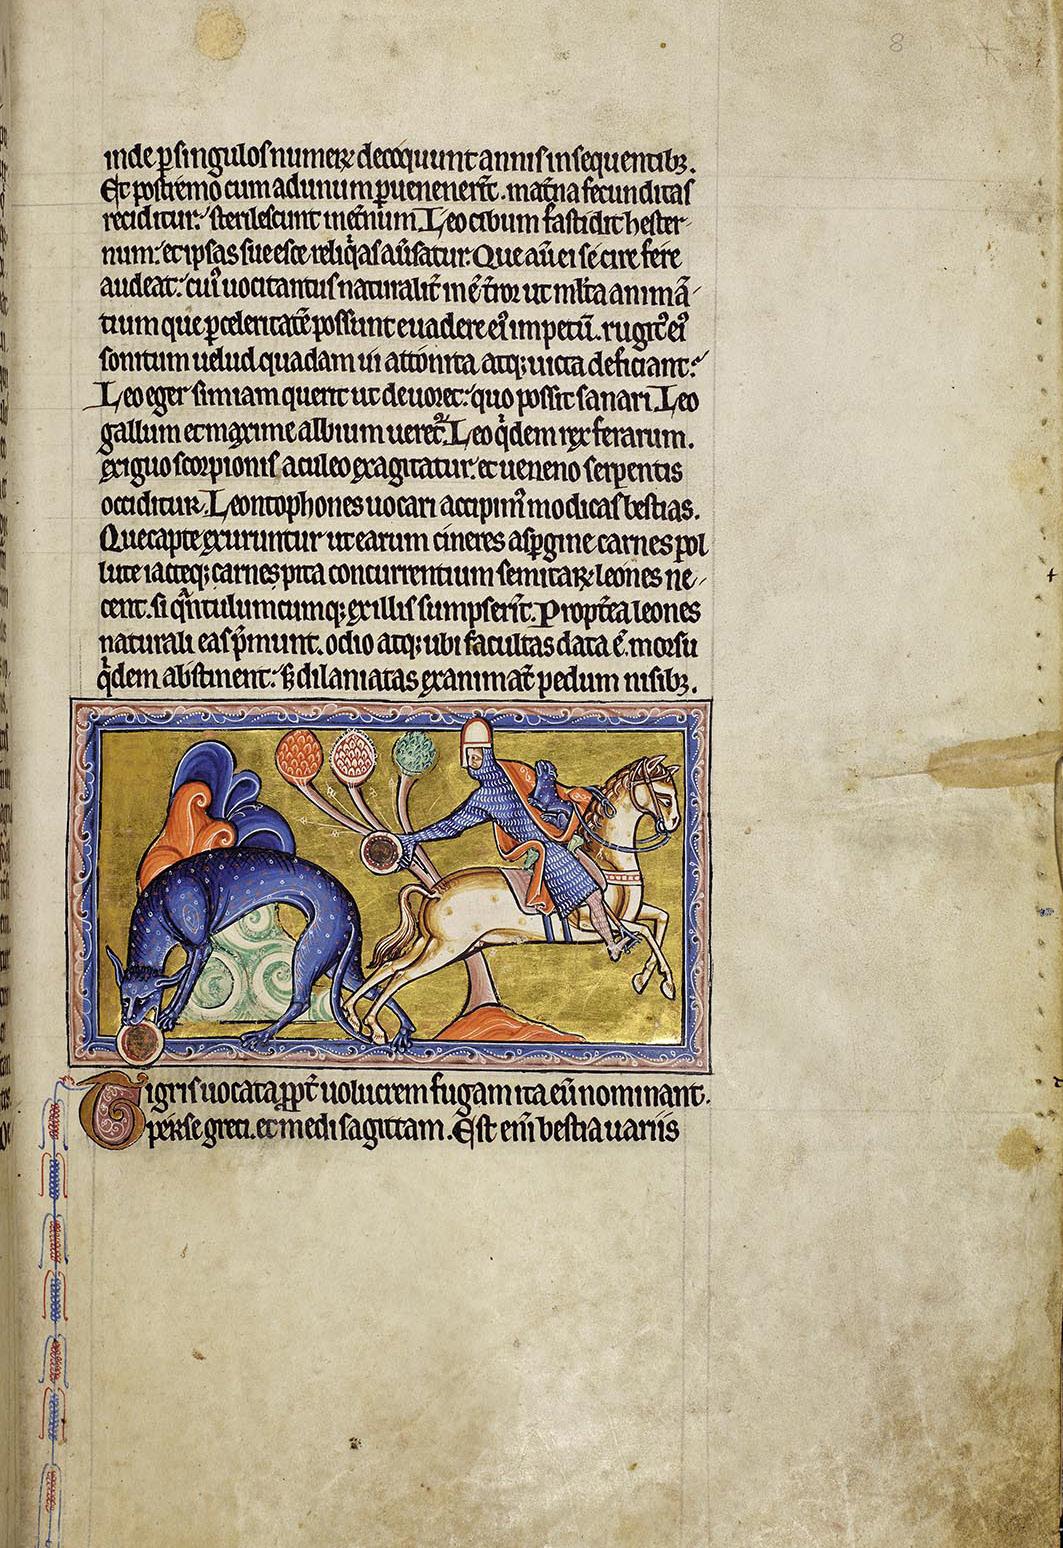 8
inde ꝑ singulos numerꝝ decoquunt annis insequentibꝫ.
Et postremo cum ad unum ꝑuenenerīt. mat̄na fecunditas
reciditur: sterilescunt inet̄num. Leo cibum fastidit hester-
num: et ipsas sue esce reliq̇as au̅satur. Que au̅ ei se cire fere
audeat: cuiꝰ uocitantus naturalit̄ inē t̄ror ut ml̅ta animā-
tium que ꝑ celeritatē possunt euadere eiꝰ impetū. rugitꝰ eiꝰ
sonitum uelud quadam ui attonita atqꝫ uicta deficiant:
Leo eger simiam querit ut deuoret: quo possit sanari. Leo
gallum et maxime album ueret᷑. Leo q̇dem rex ferarum.
exiguo scorpionis aculeo exagitatur. et ueneno serpentis
occiditur. Leontophones uocari accipimꝰ modicas bestias.
Que capte exuruntur ut earum cineres aspgine carnes pol
lute iacteqꝫ carnes ꝑ ita concurrentium semitarꝝ leones ne-
cent. si q̄ntulumcumqꝫ ex illis sumpserīt. Propt̄ea leones
naturali eas p̄munt. odio atqꝫ ubi facultas data ē. morsu
q̇dem abstinent: sꝫ dilaniatas exanimāt pedum nisibꝫ.
Tigris uocata ꝓpt̄ uolucrem fugam ita eni̅ nominant.
perse greci. et medi sagittam. Est eni̅ bestia uariis